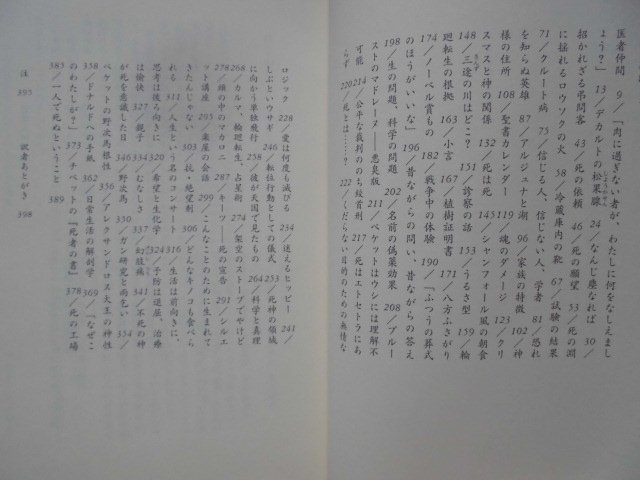 医者仲間 9／「肉に過ぎない者が、わたしに何をなしえまし
ょう？」 13／デカルトの松果腺 24／なんじ塵なれば 30／
招かれざる弔問客 43／死の依頼 46／死の願望 53／死の淵
に揺れるロウソクの火 58／冷蔵庫内の靴 67／試験の結果
71／クルート病 75／信じる人、信じない人、学者 81／恐れ
を知らぬ英雄 87／アルジュナと湖 96／家族の特徴 102／神
様の住所 108／聖書カレンダー 119／魂のダタージ 123／クリ
スマスと神の関係 132／死は死 145／シャンフォール風の朝食
148／三途の川はどこ？ 151／診察の話 153／うるさ型 159／輪
廻転生の根拠 163／小言 167／植樹証明書 171／八方ふさがり
174／ノーベル賞もの 182／戦争中の体験 190／「ふつうの葬式
のほうがいいな」 196／昔ながらの問い、昔ながらの答え
198／生の問題、科学の問題 202／名前の偽薬効果 208／ブルー
ストのマドレーヌ——悪臭版 211／ベケットはウシには理解不
可能 214／公平な裁判ののち絞首刑 217／死はエトセトラにあ
らず 220／死とは……？ 222／くだらない目的のための無情な
ロジック 228／愛は何度も滅びる 234／迷えるヒッピー 241／
しぶといウサギ 246／転位行動としての儀式 253／死神の領域
に向かう単独飛行 258／彼が天国で見たもの 264／科学と真理
268／カルマ、輪廻転生、占星術 274／架空のストーブでやけど
278／頭の中のマカロニ 287／キーツ——死の宣告 291／シルエ
ット講座 295／楽屋の会話 299／こんなことのために生まれて
きたんじゃない 303／抗・絶望剤 306／どんなキノコも食べら
れる 311／人生という名のコンサート 316／生活は前向きに、
思考は後ろ向きに 320／希望と生化学 324／予防は退屈、治療
は愉快 327／親子 334／むなしさ 337／肢痛 341／不死の神
が死を意識した日 346／野次馬 350／ガン研究と雨乞い 354／
ベケットの野次馬根性 356／アレクサンドロス大王の神性
358／ドナルドへの手紙 362／日常生活の解剖学 369／「なぜこ
のわたしが？」 373／チベットの『死者の書』 378／死の工場
385／一人で死ぬということ 389
注 395 訳者あとがき 398